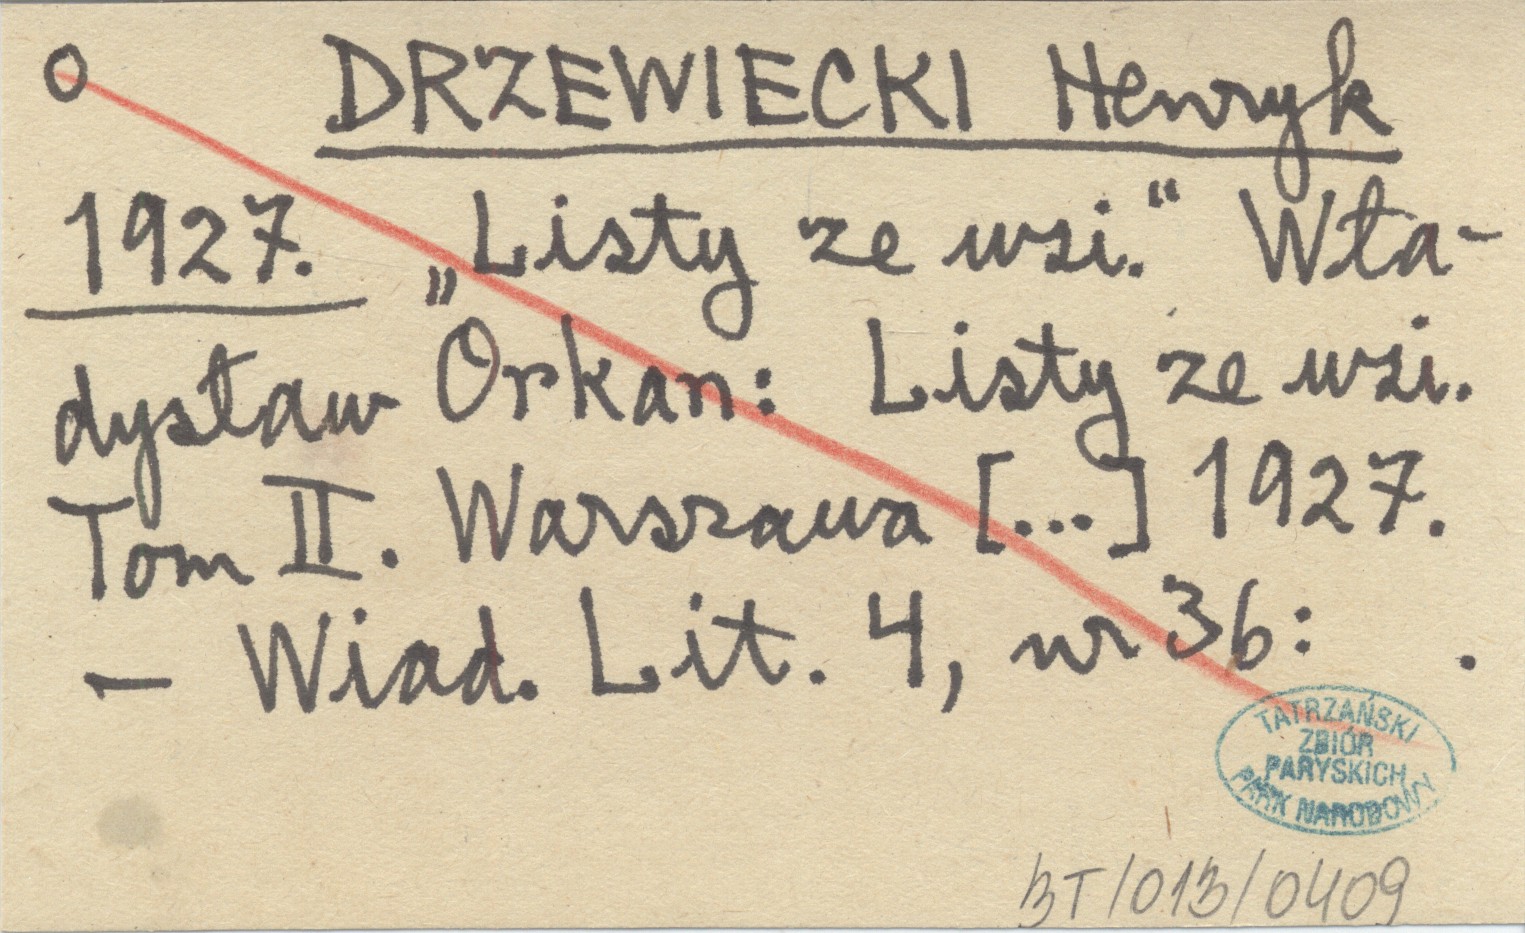 O DRZEWIECKI Henryk
1927. „Listy ze wsi.“ Wła-
dysław Orkan: Listy ze wsi.
Tom II. Warszawa [...] 1927.
— Wiad. Lit. 4, nr 36: .
TATRZAŃSKI
ZBIÓR
PARYSKICH
PARK NARODOWY
BT/013/0409